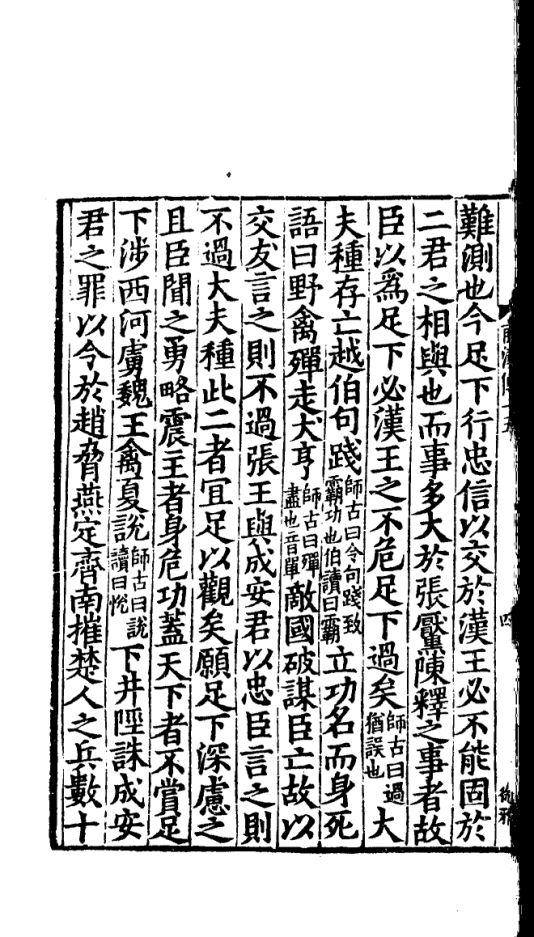 難測也今足下行忠信以交於漢王必不能固於
二君之相與也而事多大於張黶陳釋之事者故
臣以爲足下必漢王之不危足下過矣師古曰過猶誤也大
夫種存亡越伯句踐師古曰令句踐致霸功也伯讀曰霸立功名而身死
語曰野禽殫走犬亨師古曰殫盡也音單敵國破謀臣亡故以
交友言之則不過張王與成安君以忠臣言之則
不過大夫種此二者宜足以觀矣願足下深慮之
且臣聞之勇略震主者身危功蓋天下者不賞足
下涉西河虜魏王禽夏說師古曰說讀曰悅下井陘誅成安
君之罪以令於趙脅燕定齊南摧楚人之兵數十
四